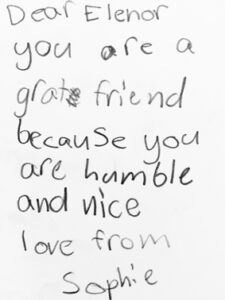 Dear Elenor
you are a
grate friend
because you
are humble
and nice
love from
Sophie